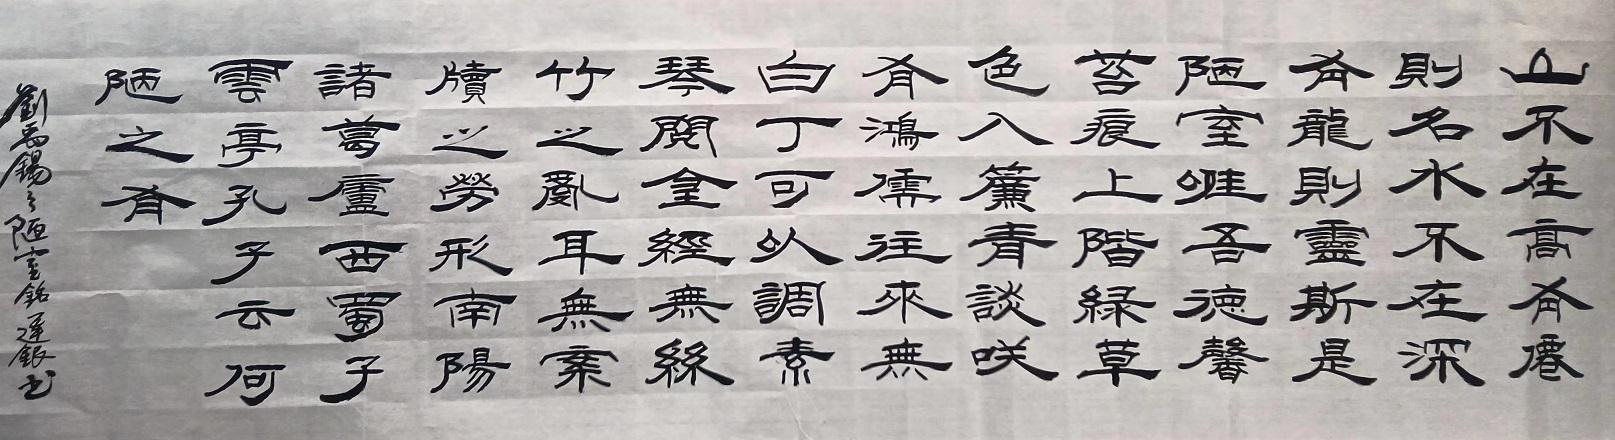 山不在高有僊
則名水不在深
有龍則靈斯是
陋室唯吾德馨
苔痕上階緑草
色入簾青談咲
有鴻儒往來無
白丁可以調素
琴閱金經無絲
竹之亂耳無案
牘之勞形南陽
諸葛廬西蜀子
雲亭孔子云何
陋之有
劉禹錫之陋室銘運銀书